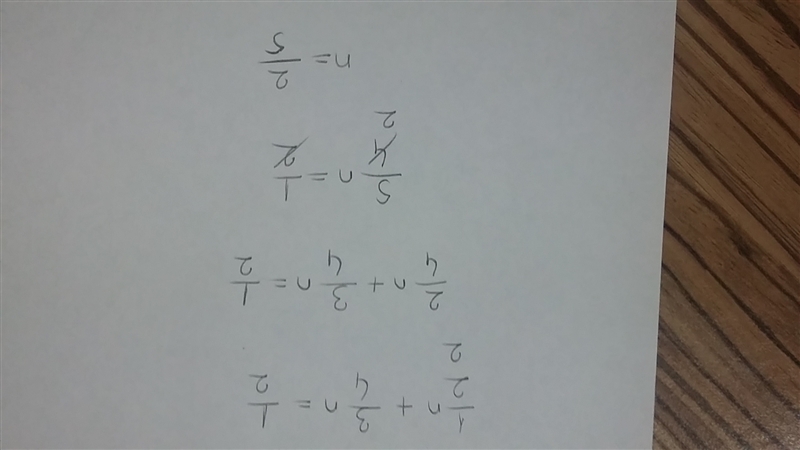 1/2 n + 3/4 n = 1/2
2
2/4 n + 3/4 n = 1/2
5/4 n = 1/2
2
n = 2/5